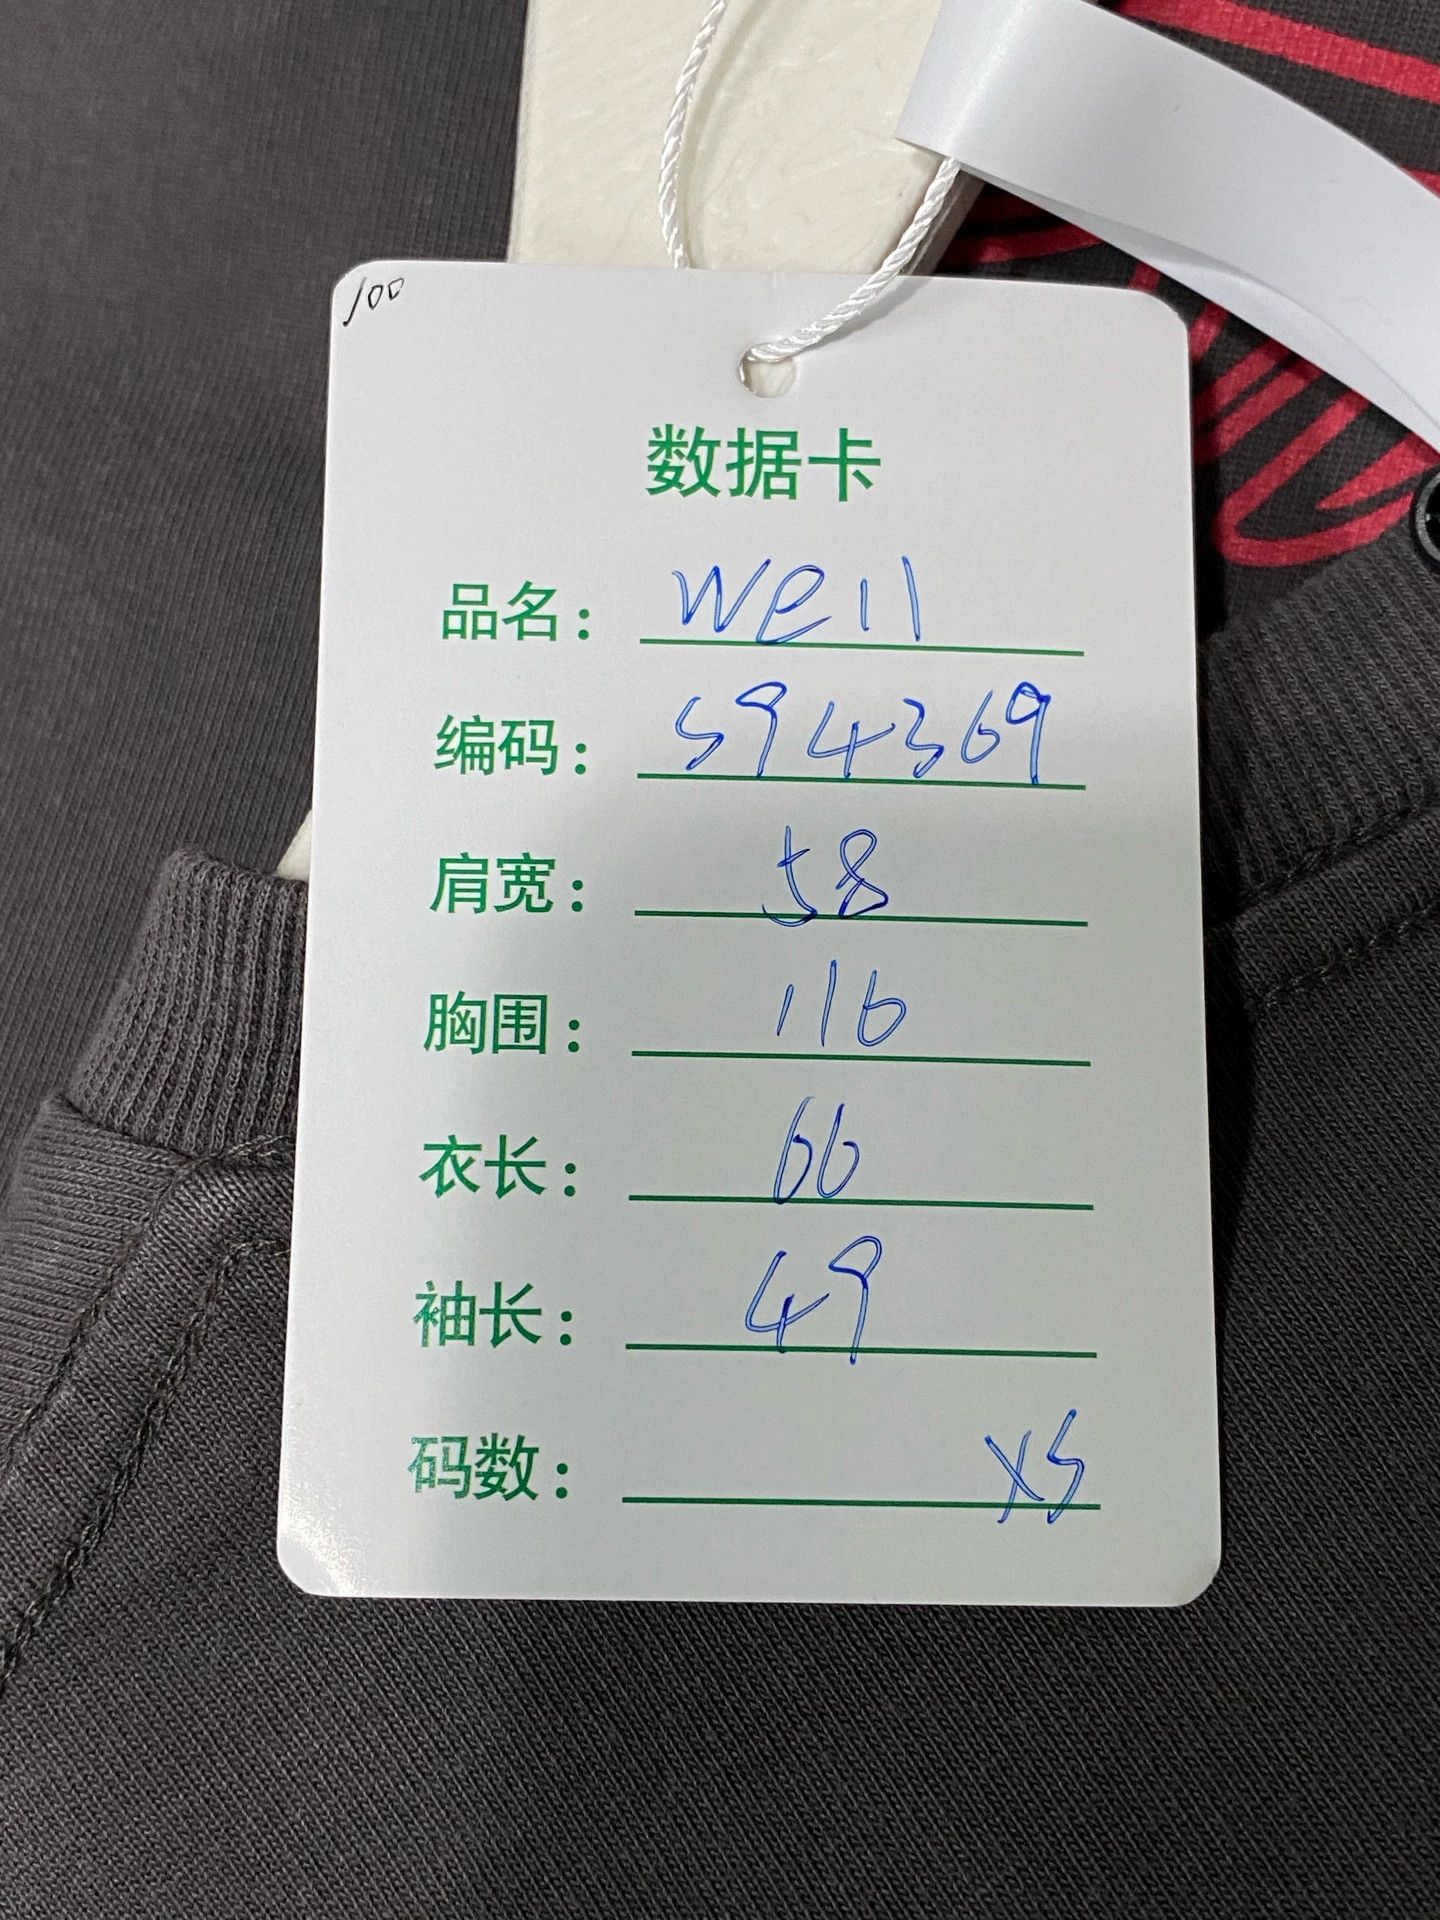 100
数据卡
品名: we11
编码: S94369
肩宽: 58
胸围: 116
衣长: 66
袖长: 49
码数: XS